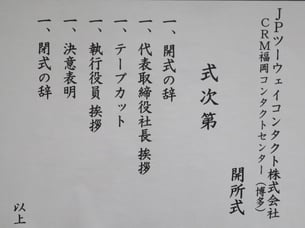 JPツーウェイコンタクト株式会社
CRM福岡コンタクトセンター（博多）
開所式
式次第
一、開式の辞
一、代表取締役社長 挨拶
一、テープカット
一、執行役員 挨拶
一、決意表明
一、閉式の辞
以上